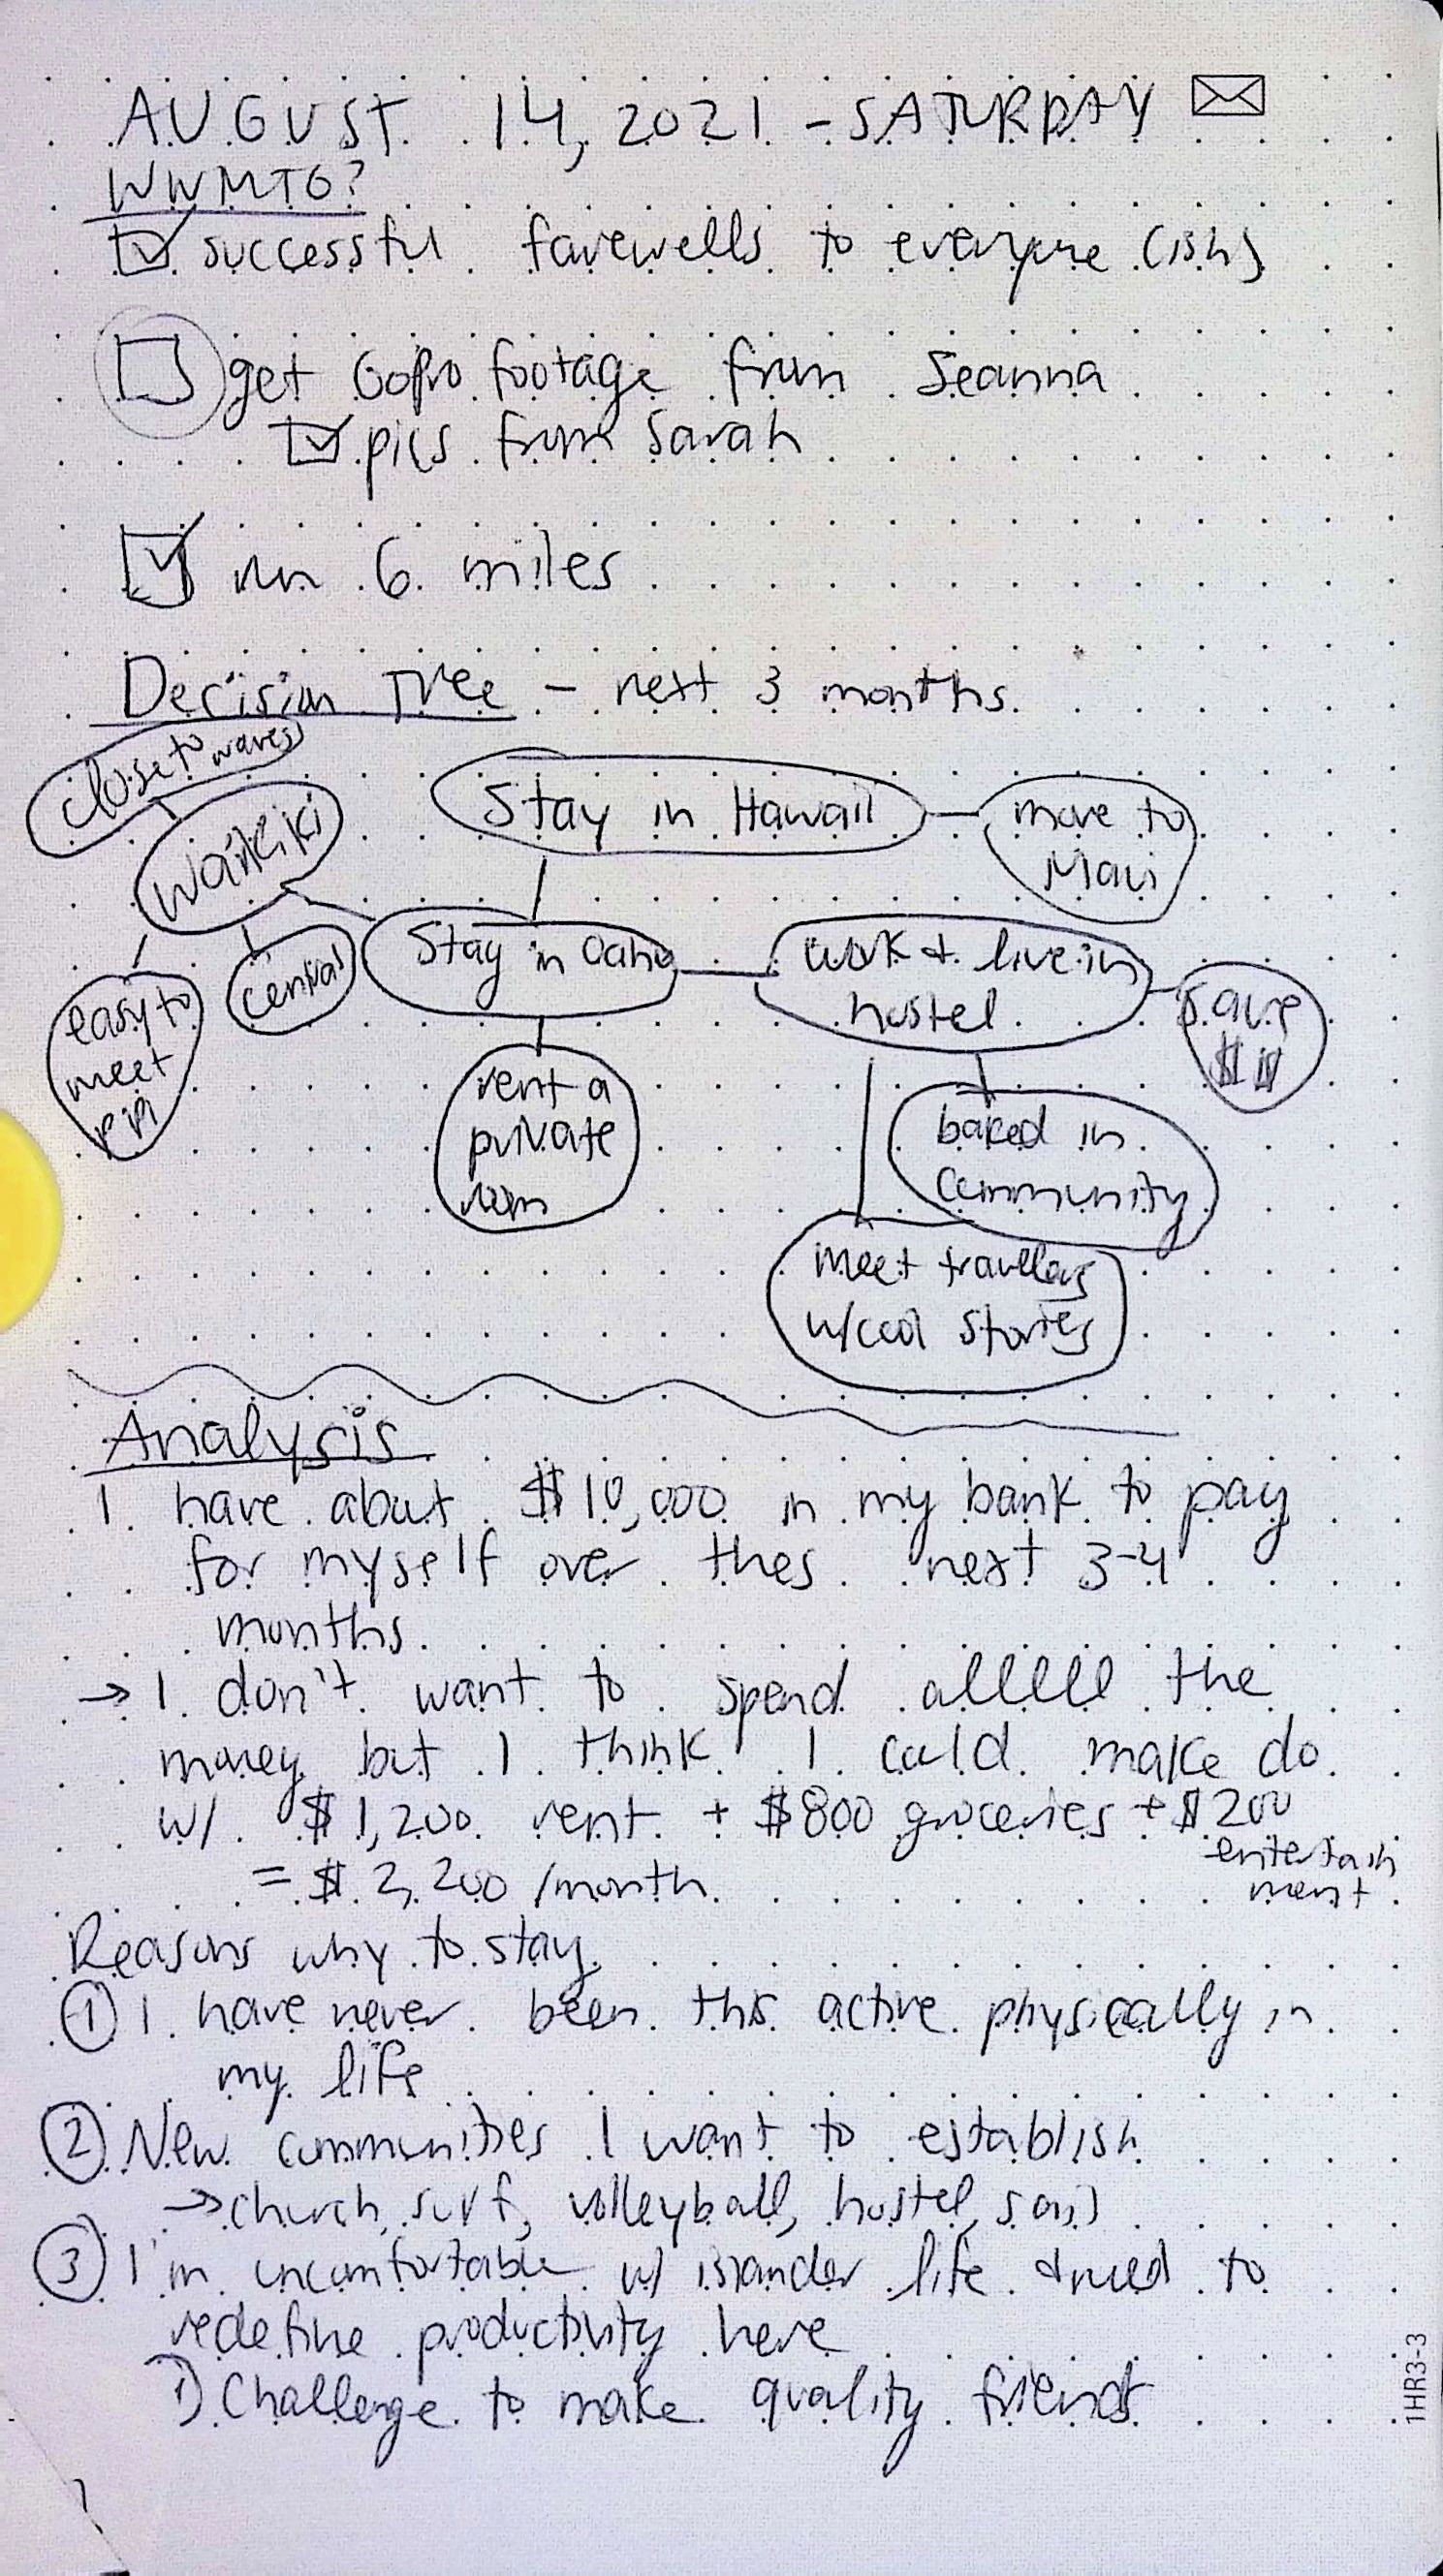 AUGUST 14, 2021 - SATURDAY
WWMTG?
successful farewells to everyone (ish)
get GoPro footage from Seanna
pics from Sarah
run 6 miles
Decision Tree - next 3 months
close to waves
Waikiki
easy to
meet
ppl
central
Stay in Hawaii
move to
Maui
Stay in Oahu
rent a
private
room
work & live in
hostel
save
$$
baked in
community
meet travellers
w/cool stories
Analysis
I have about $10,000 in my bank to pay
for myself over thes next 3-4
months.
→ I don't want to spend alllll the
money but I think I could make do
w/ $1,200 rent + $800 groceries + $200
entertain
ment
= $2,200 /month.
Reasons why to stay
① I have never been this active physically in
my life
② New communities I want to establish
→ church, surf, volleyball, hostel, sail
③ I'm uncomfortable w/ islander life & need to
redefine productivity here
1) Challenge to make quality friends
1HR3-3